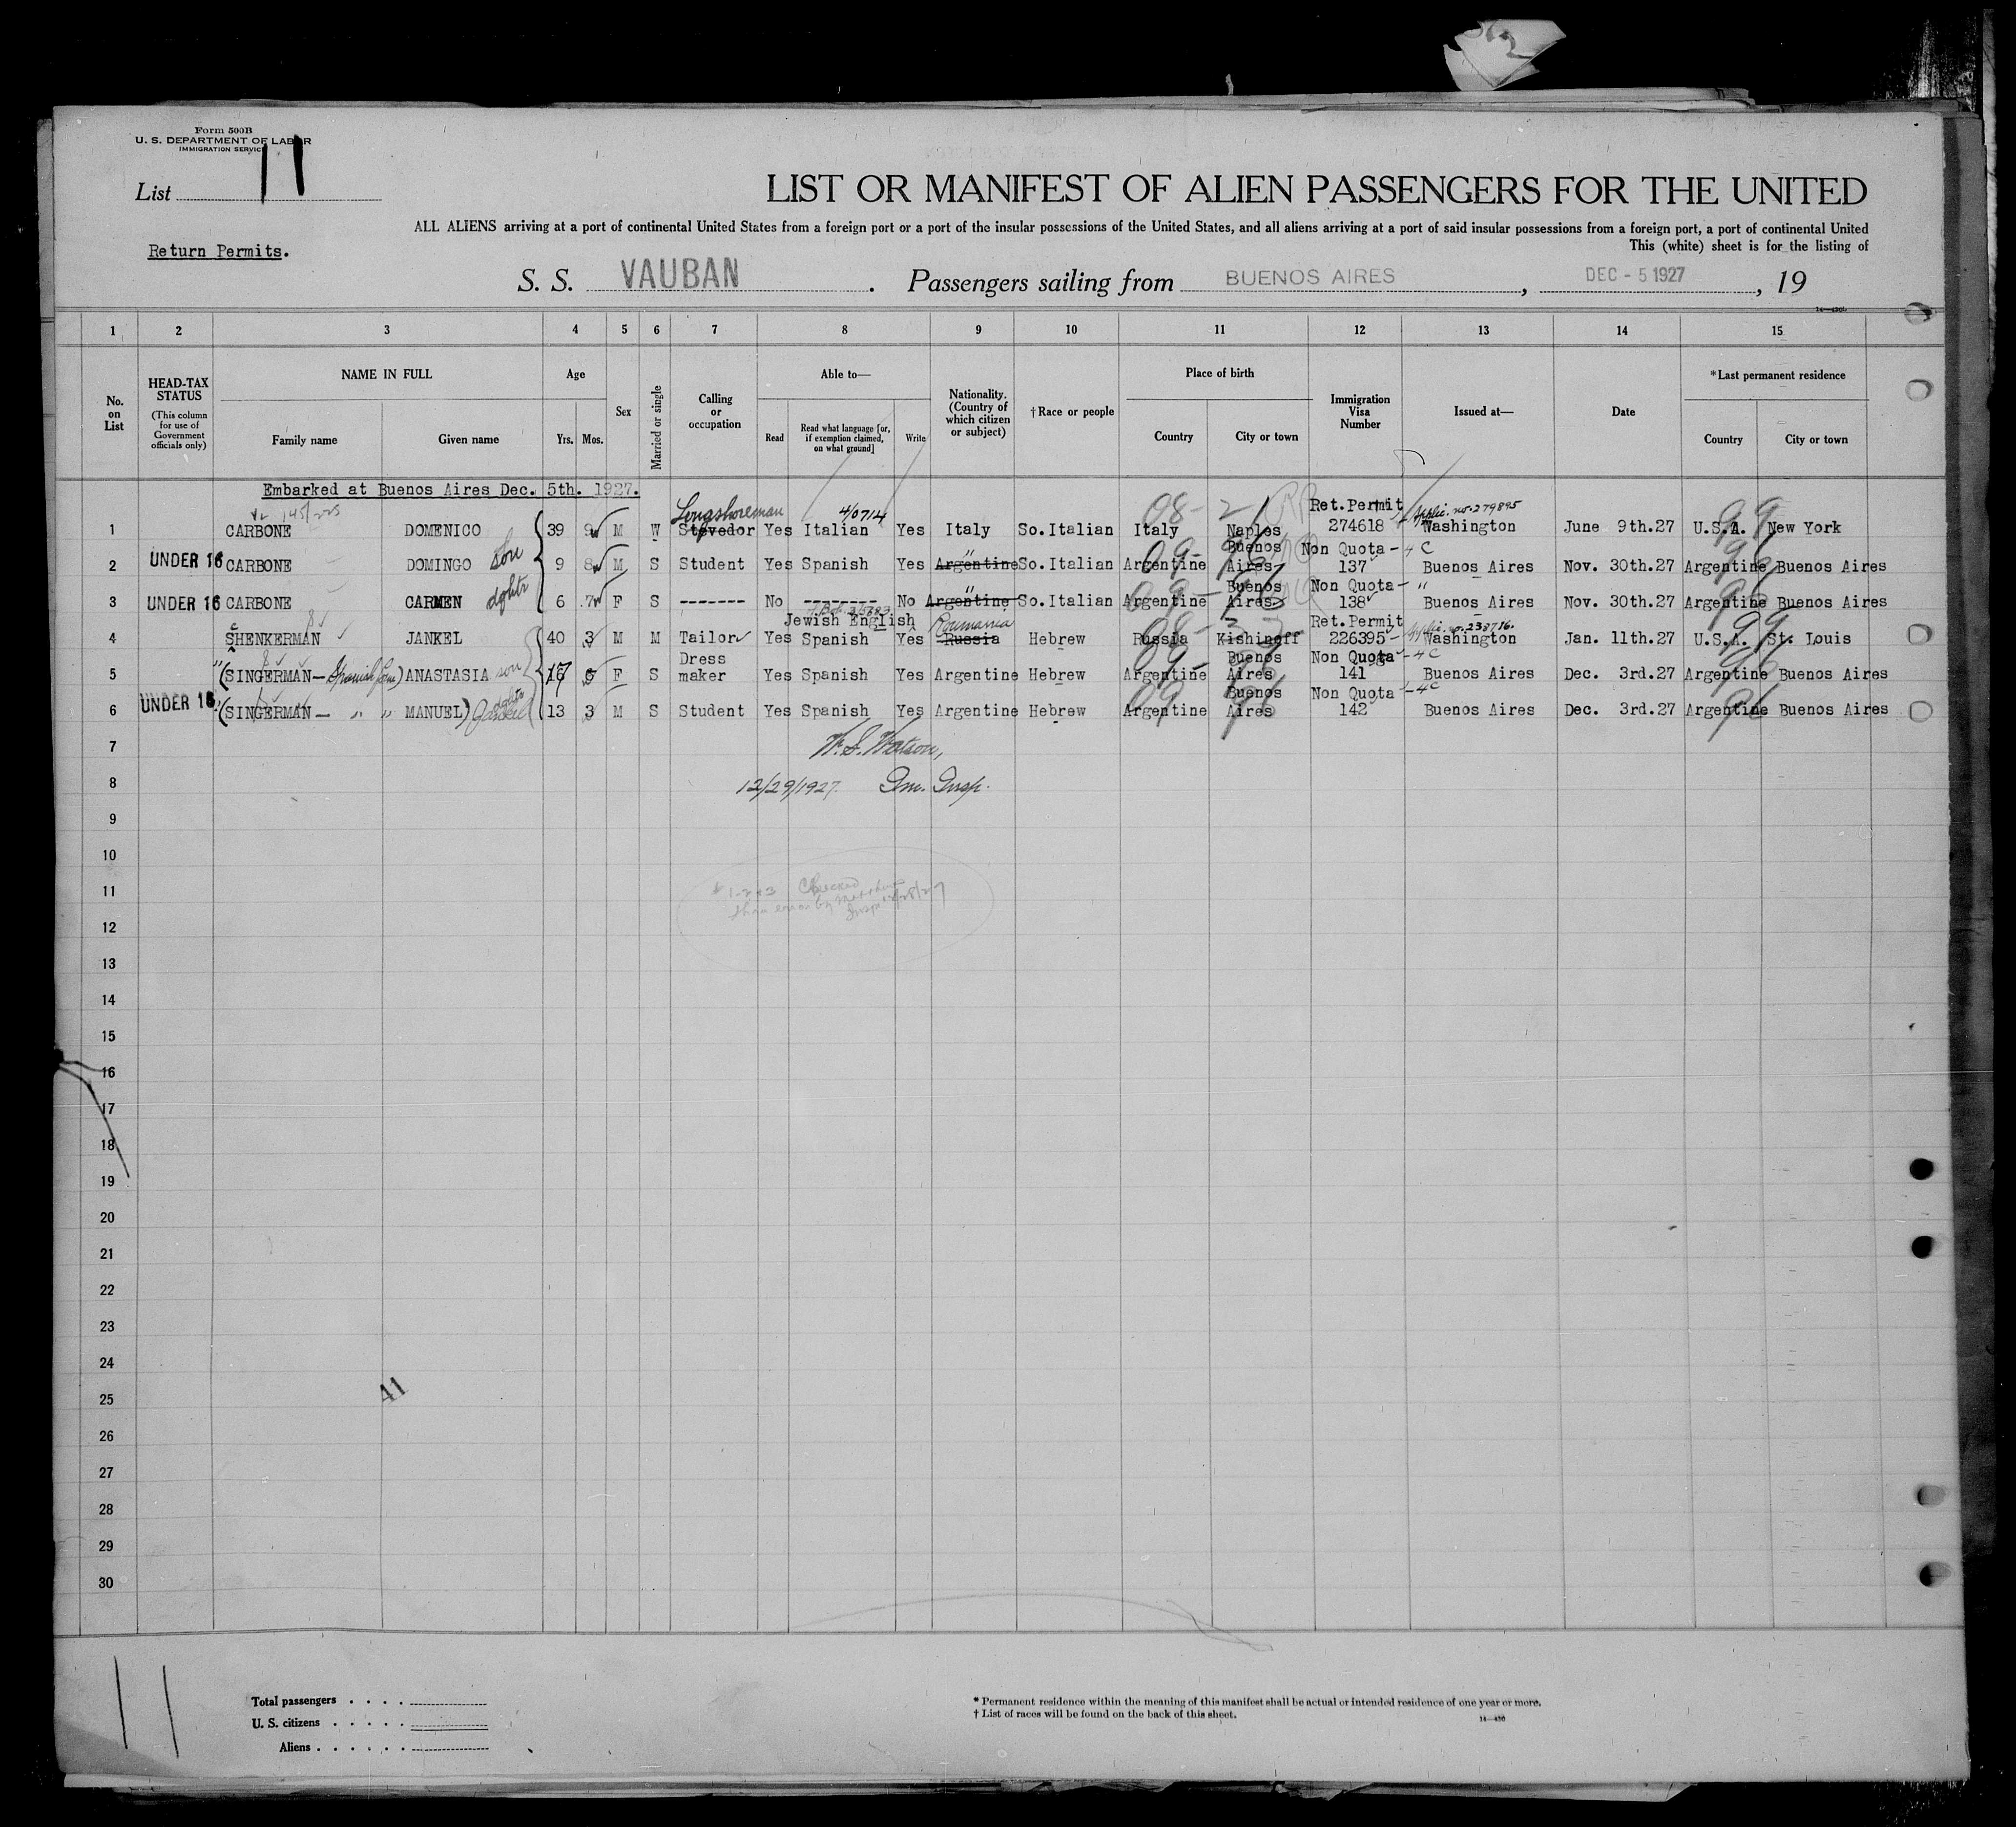 Form 500B
U. S. DEPARTMENT OF LABOR
IMMIGRATION SERVICE
List 11
LIST OR MANIFEST OF ALIEN PASSENGERS FOR THE UNITED
ALL ALIENS arriving at a port of continental United States from a foreign port or a port of the insular possessions of the United States, and all aliens arriving at a port of said insular possessions from a foreign port, a port of continental United
Return Permits.
This (white) sheet is for the listing of
S. S. VAUBAN. Passengers sailing from BUENOS AIRES, DEC - 5 1927, 19
1 2 3 4 5 6 7 8 9 10 11 12 13 14 15
No. on List
HEAD-TAX STATUS (This column for use of Government officials only)
NAME IN FULL Family name Given name
Age Yrs. Mos.
Sex
Married or single
Calling or occupation
Able to— Read Read what language [or, if exemption claimed, on what ground] Write
Nationality. (Country of which citizen or subject)
†Race or people
Place of birth Country City or town
Immigration Visa Number
Issued at—
Date
*Last permanent residence Country City or town
Embarked at Buenos Aires Dec. 5th. 1927.
Longshoreman 4/0714 Ret.Permit Applic. no. 279895
1 CARBONE DOMENICO 39 9 M W Stevedor Yes Italian Yes Italy So.Italian Italy Naples 274618 Washington June 9th.27 U.S.A. New York
2 UNDER 16 CARBONE DOMINGO son 9 8 M S Student Yes Spanish Yes Argentine " So.Italian Argentine Buenos Aires Non Quota - 4 C 137 Buenos Aires Nov. 30th.27 Argentine Buenos Aires
3 UNDER 16 CARBONE CARMEN dghtr 6 7 F S ------- No -------- No Argentine " So.Italian Argentine Buenos Aires Non Quota - " 138 Buenos Aires Nov. 30th.27 Argentine Buenos Aires
4 SHENKERMAN JANKEL 40 3 M M Tailor Yes Jewish English Spanish Yes Russia Roumania Hebrew Russia Kishineff Ret.Permit 226395 Washington Jan. 11th.27 U.S.A. St. Louis
5 " (SINGERMAN - Spanish form) ANASTASIA son 17 F S Dress maker Yes Spanish Yes Argentine Hebrew Argentine Buenos Aires Non Quota - 4C 141 Buenos Aires Dec. 3rd.27 Argentine Buenos Aires
6 UNDER 16 " (SINGERMAN - " " MANUEL) dghtr 13 3 M S Student Yes Spanish Yes Argentine Hebrew Argentine Buenos Aires Non Quota - 4C 142 Buenos Aires Dec. 3rd.27 Argentine Buenos Aires
7 W. S. Watson,
8 12/29/1927 Im. Insp.
9
10
11
12
13
14
15
16
17
18
19
20
21
22
23
24
25 41
26
27
28
29
30
11
Total passengers . . . .
U. S. citizens . . . . .
Aliens . . . . . .
* Permanent residence within the meaning of this manifest shall be actual or intended residence of one year or more.
† List of races will be found on the back of this sheet.